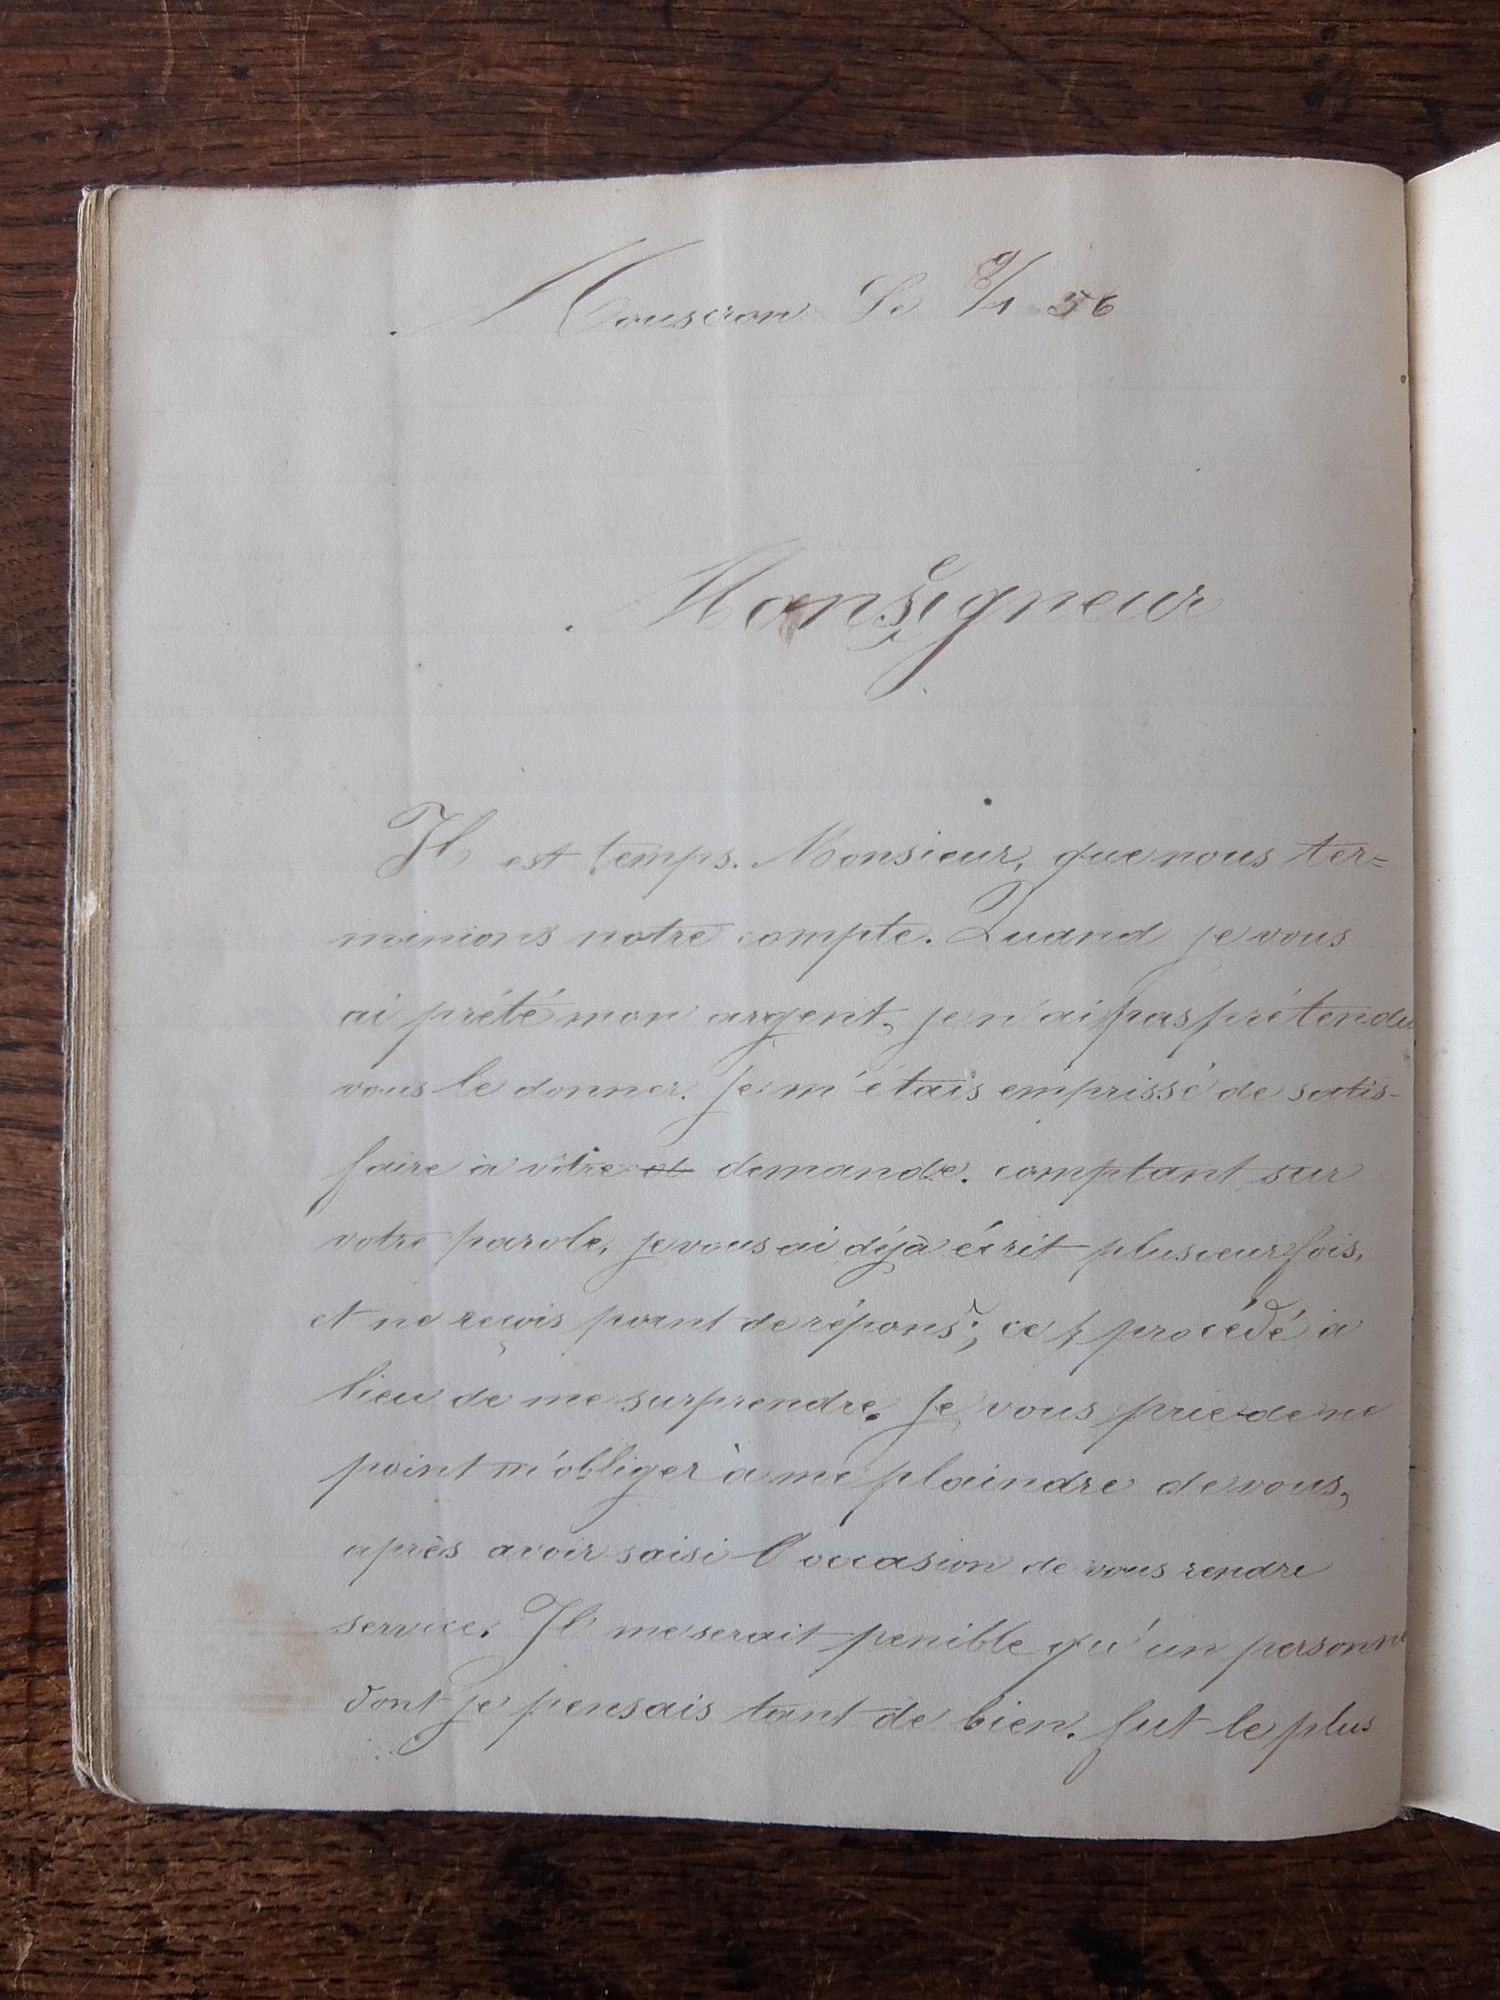 Mouscron Le 9/1 56
Monseigneur
Il est temps. Monsieur, que nous ter=
minions notre compte. Quand je vous
ai prété mon argent, je n'ai pas prétendu
vous le donner. Je m'étais emprissé de satis-
faire à vôtre demande. comptant sur
votre parole, je vous ai déjà écrit plusieur fois,
et ne reçois point de répons; ce procédé a
lieu de me surprendre. Je vous prie de ne
point m'obliger à me plaindre de vous,
après avoir saisi l'occasion de vous rendre
service. Il me serait penible qu'un personne
dont je pensais tant de bien. fut le plus